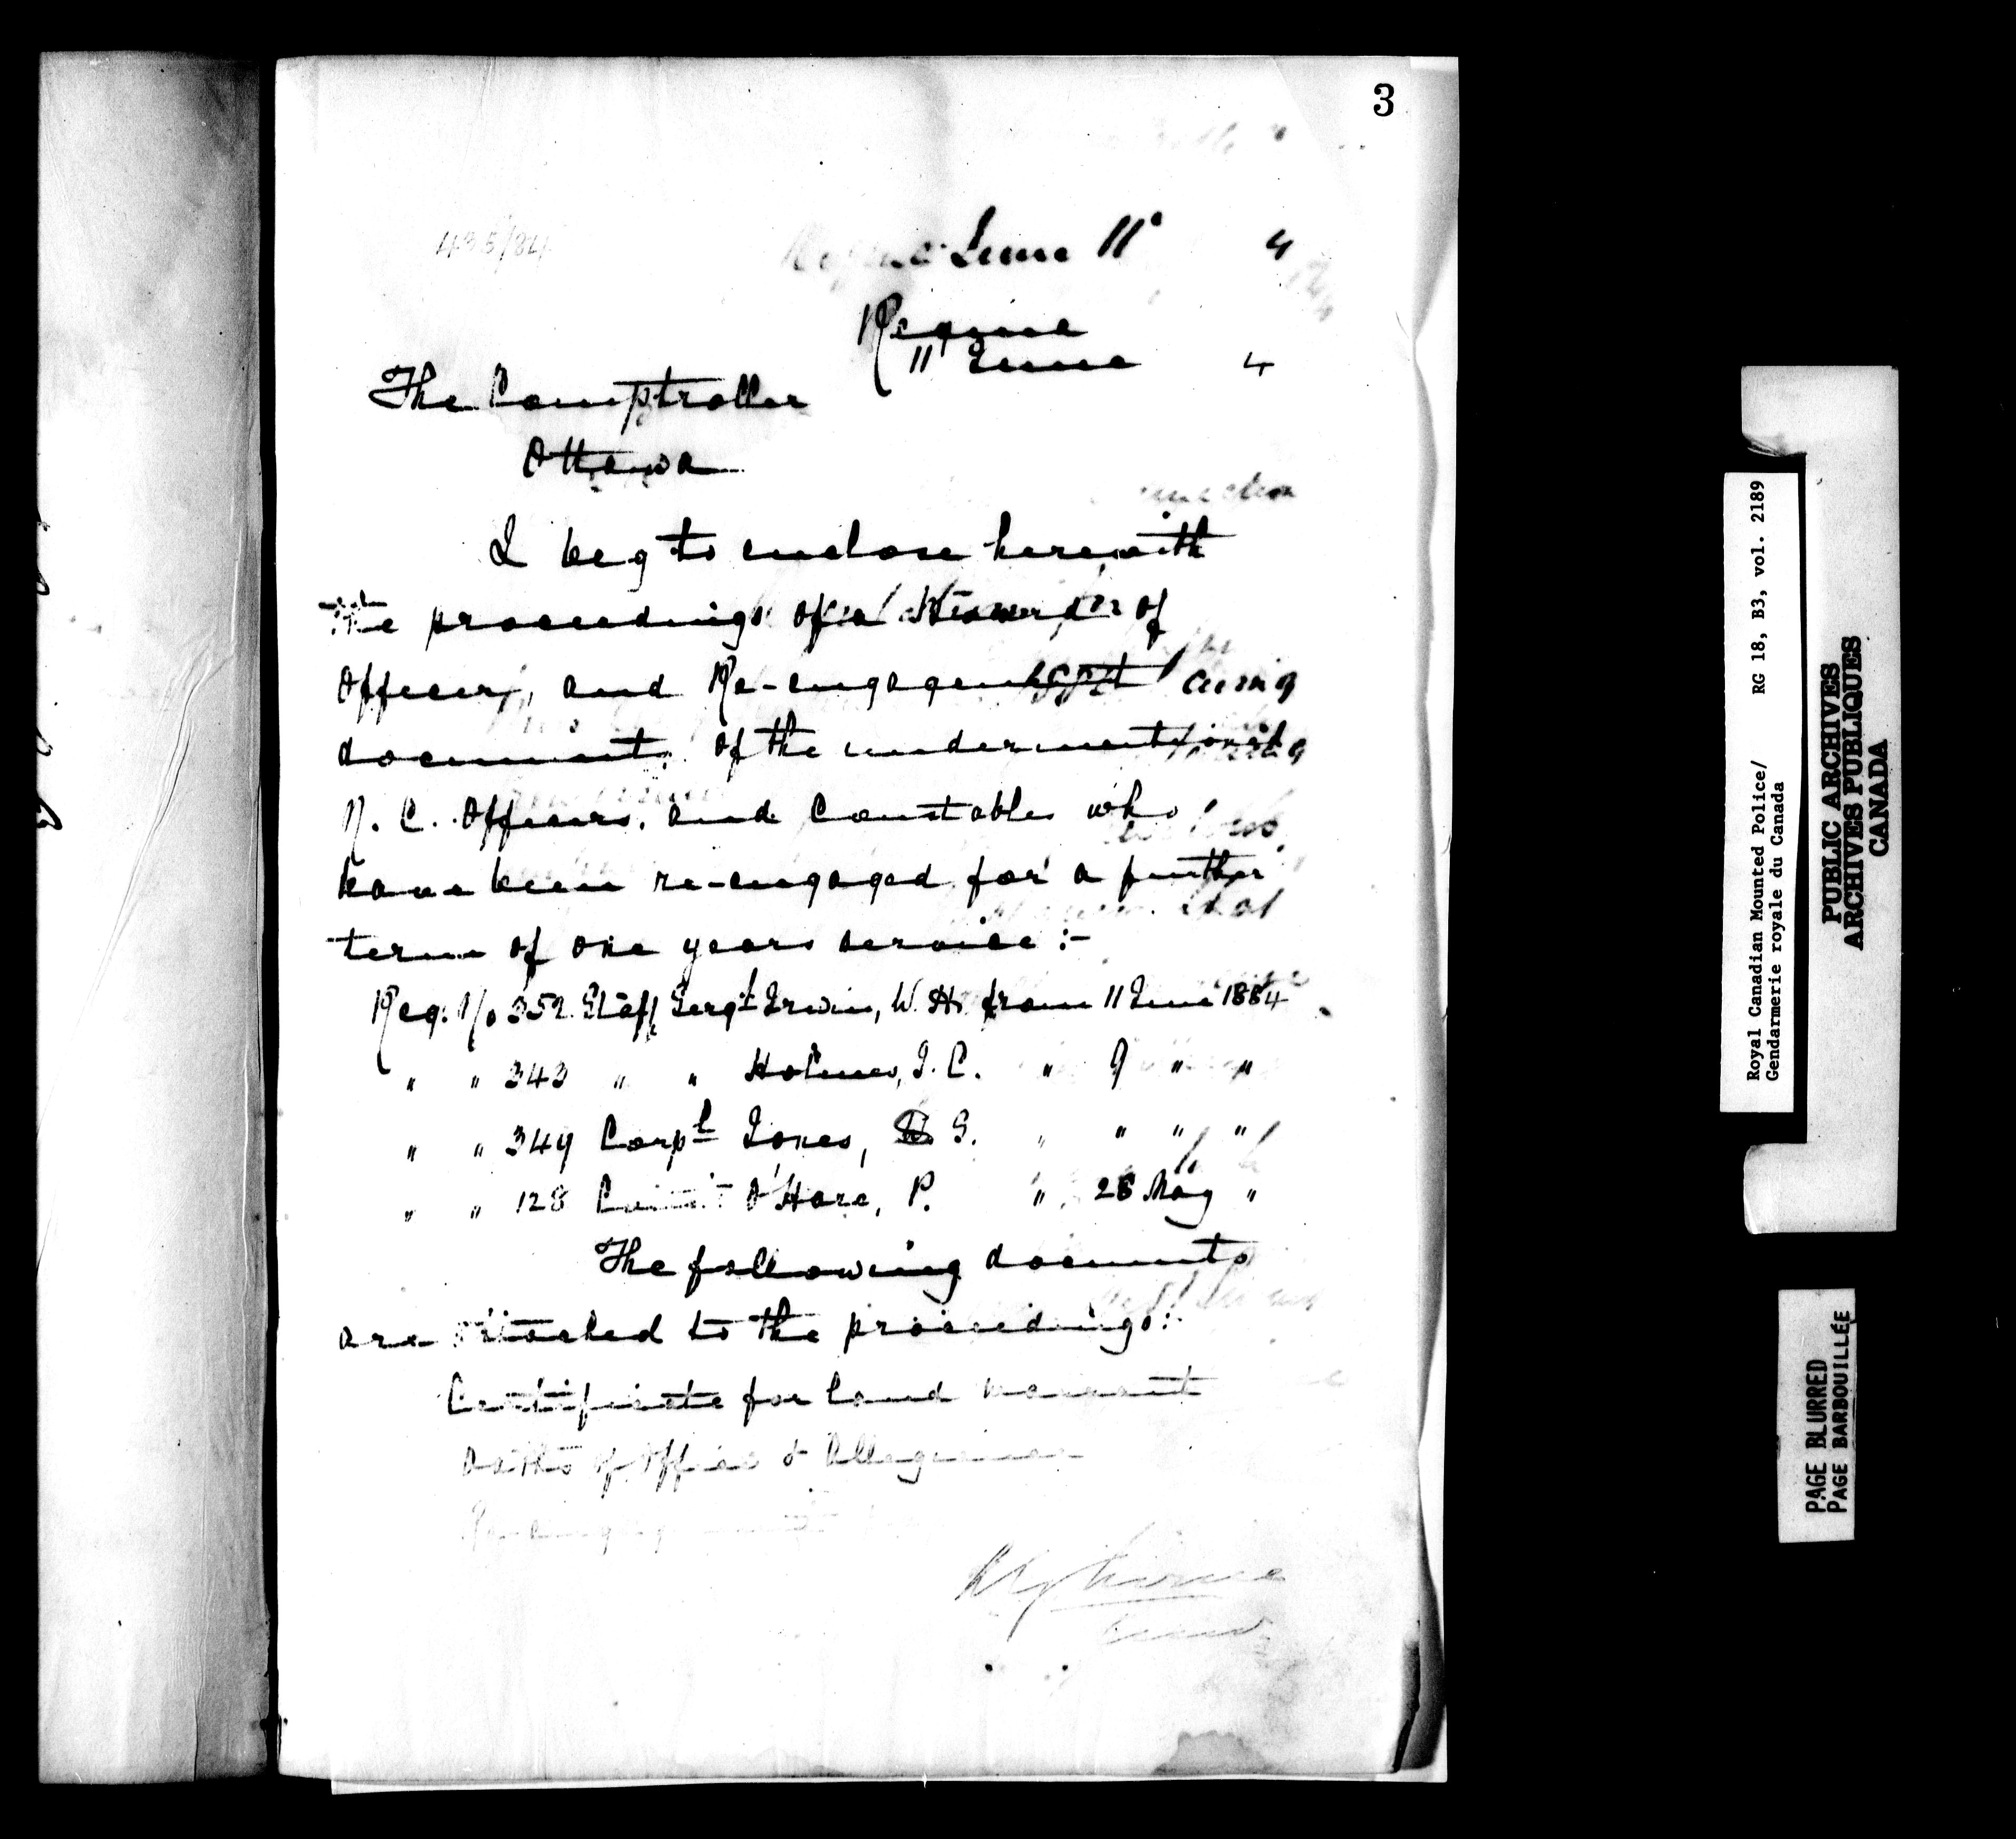 3
435/84
Regina June 11" 4
Regina
11 June 4
The Comptroller
Ottawa
I beg to enclose herewith
the proceedings of a Board of
Officers, and Re-engagement
documents of the undermentioned
N. C. Officers. and Constables who
have been re-engaged for a further
term of one years service :-
Reg. No 352 Staff Sergt Irwin, W. H. from 11 June 1884
" " 343 " " Holmes, J. C. " 9 " "
" " 349 Corpl Jones, G. " " " "
" " 128 Const O'Hare, P. " 28 May "
The following documents
are attached to the proceedings:-
Certificate for land warrant
Oaths of Office & Allegiance
Re-engagement
Royal Canadian Mounted Police/ RG 18, B3, vol. 2189
Gendarmerie royale du Canada
PUBLIC ARCHIVES
ARCHIVES PUBLIQUES
CANADA
PAGE BLURRED
PAGE BARBOUILLÉE